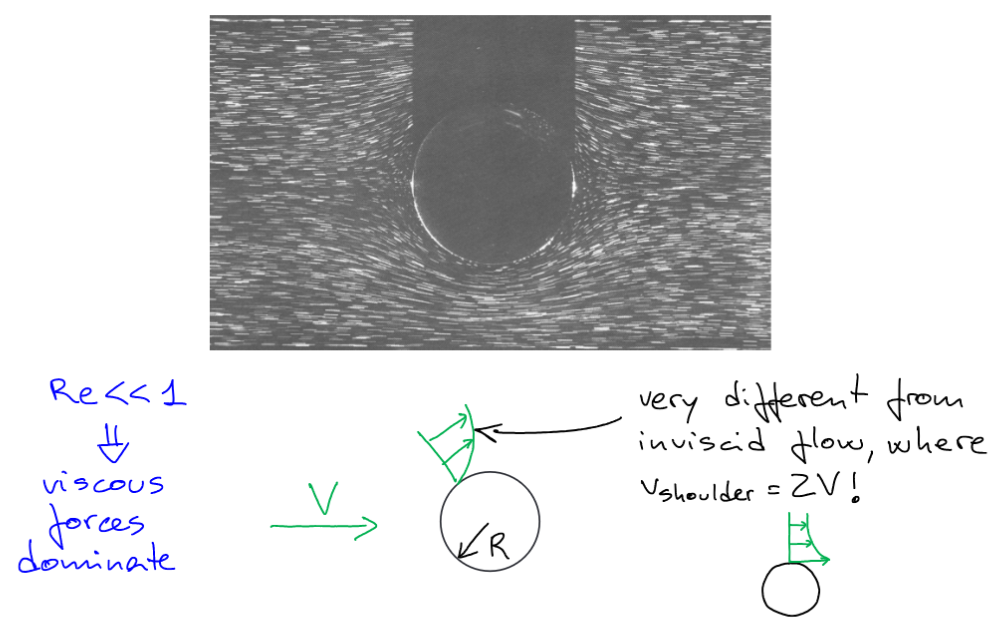 Re<<1
⇓
viscous
forces
dominate
V
R
very different from
inviscid flow, where
vshoulder = 2V!